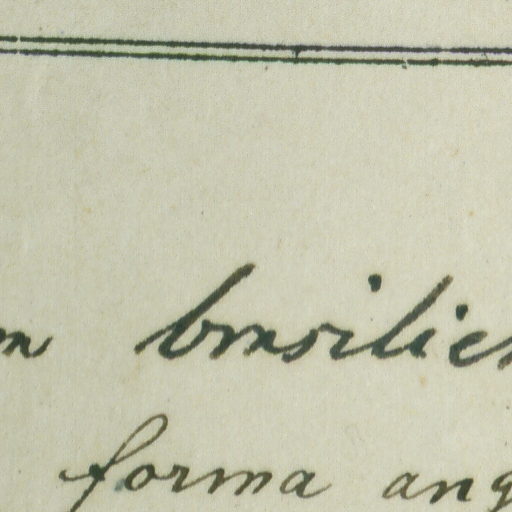 m brasilien
forma ang